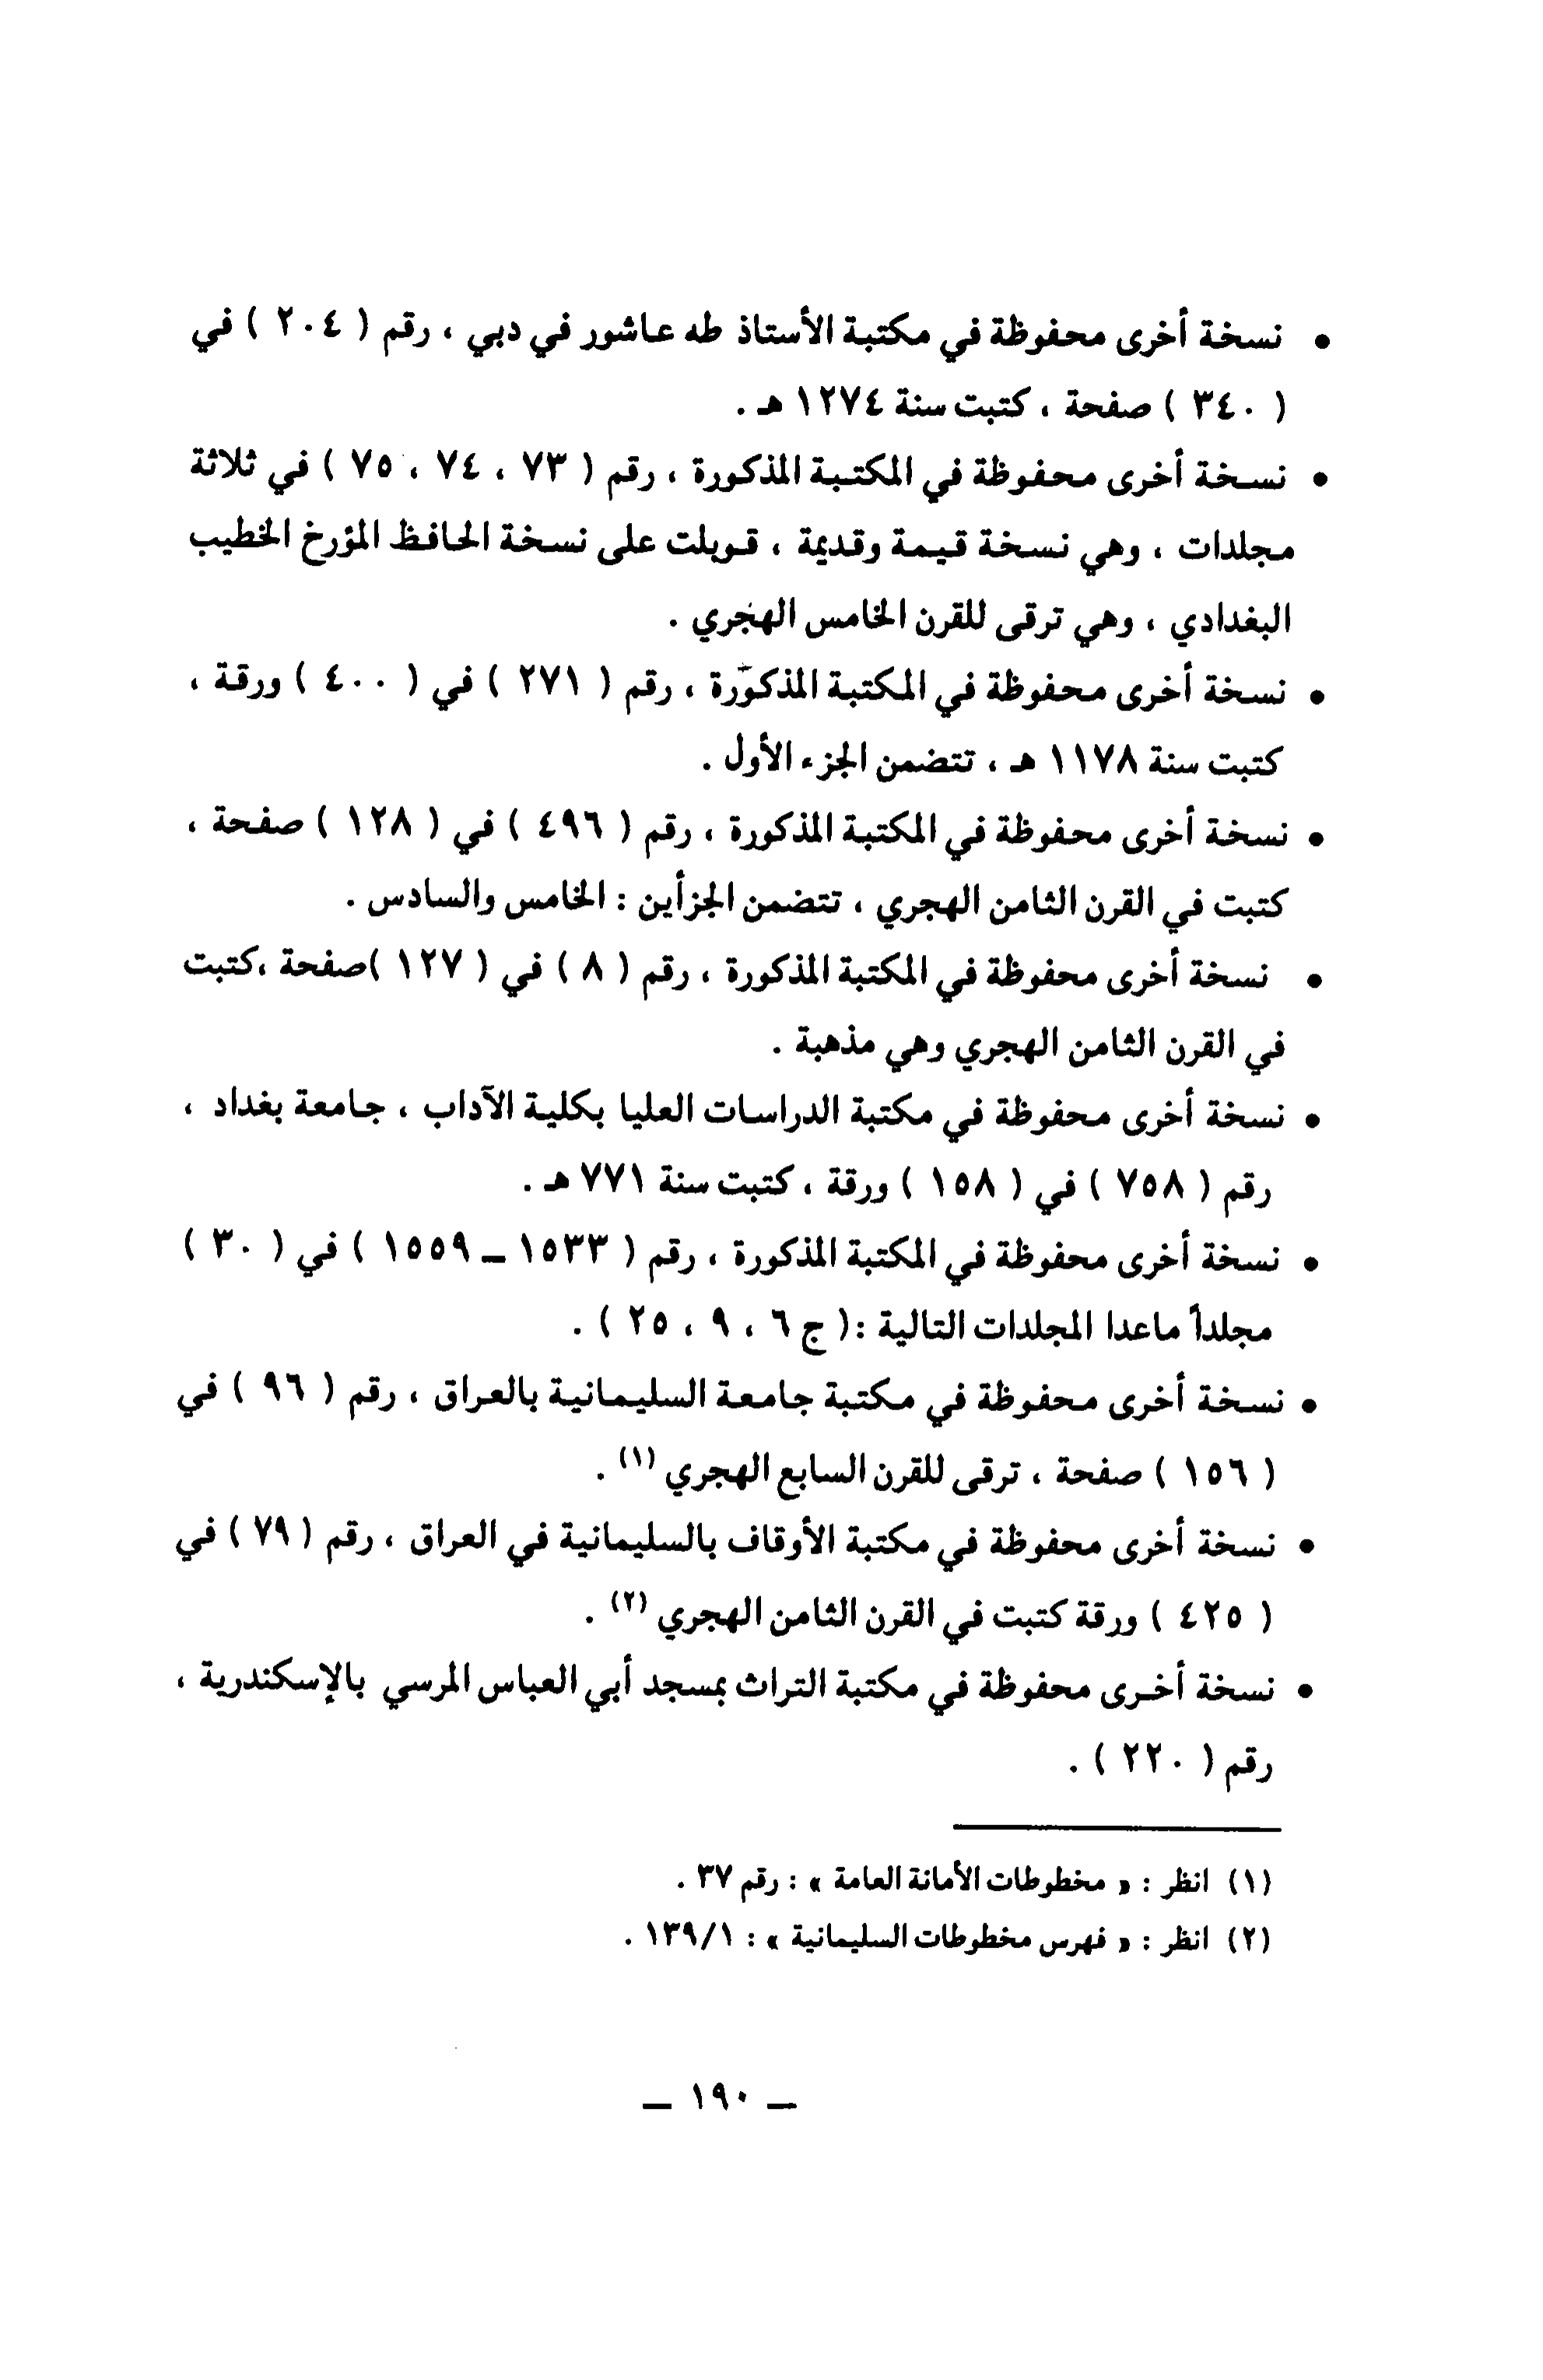 • نسخة أخرى محفوظة في مكتبة الأستاذ طه عاشور في دبي ، رقم ( ٢٠٤ ) في
( ٣٤٠ ) صفحة ، كتبت سنة ١٢٧٤ هـ .
• نسخة أخرى محفوظة في المكتبة المذكورة ، رقم ( ٧٣ ، ٧٤ ، ٧٥ ) في ثلاثة
مجلدات ، وهي نسخة قيمة وقديمة ، قوبلت على نسخة الحافظ المؤرخ الخطيب
البغدادي ، وهي ترقى للقرن الخامس الهجري .
• نسخة أخرى محفوظة في المكتبة المذكورة ، رقم ( ٢٧١ ) في ( ٤٠٠ ) ورقة ،
كتبت سنة ١١٧٨ هـ ، تتضمن الجزء الأول .
• نسخة أخرى محفوظة في المكتبة المذكورة ، رقم ( ٤٩٦ ) في ( ١٢٨ ) صفحة ،
كتبت في القرن الثامن الهجري ، تتضمن الجزأين : الخامس والسادس .
• نسخة أخرى محفوظة في المكتبة المذكورة ، رقم ( ٨ ) في ( ١٢٧ )صفحة ،كتبت
في القرن الثامن الهجري وهي مذهبة .
• نسخة أخرى محفوظة في مكتبة الدراسات العليا بكلية الآداب ، جامعة بغداد ،
رقم ( ٧٥٨ ) في ( ١٥٨ ) ورقة ، كتبت سنة ٧٧١ هـ .
• نسخة أخرى محفوظة في المكتبة المذكورة ، رقم ( ١٥٣٣ ـ ١٥٥٩ ) في ( ٣٠ )
مجلداً ماعدا المجلدات التالية :( ج ٦ ، ٩ ، ٢٥ ) .
• نسخة أخرى محفوظة في مكتبة جامعة السليمانية بالعراق ، رقم ( ٩٦ ) في
( ١٥٦ ) صفحة ، ترقى للقرن السابع الهجري (١) .
• نسخة أخرى محفوظة في مكتبة الأوقاف بالسليمانية في العراق ، رقم ( ٧٩ ) في
( ٤٢٥ ) ورقة كتبت في القرن الثامن الهجري (٢) .
• نسخة أخرى محفوظة في مكتبة التراث بمسجد أبي العباس المرسي بالإسكندرية ،
رقم ( ٢٢٠ ) .
(١) انظر : « مخطوطات الأمانة العامة » : رقم ٣٧ .
(٢) انظر : « فهرس مخطوطات السليمانية » : ١٣٩/١ .
ـ ١٩٠ ـ